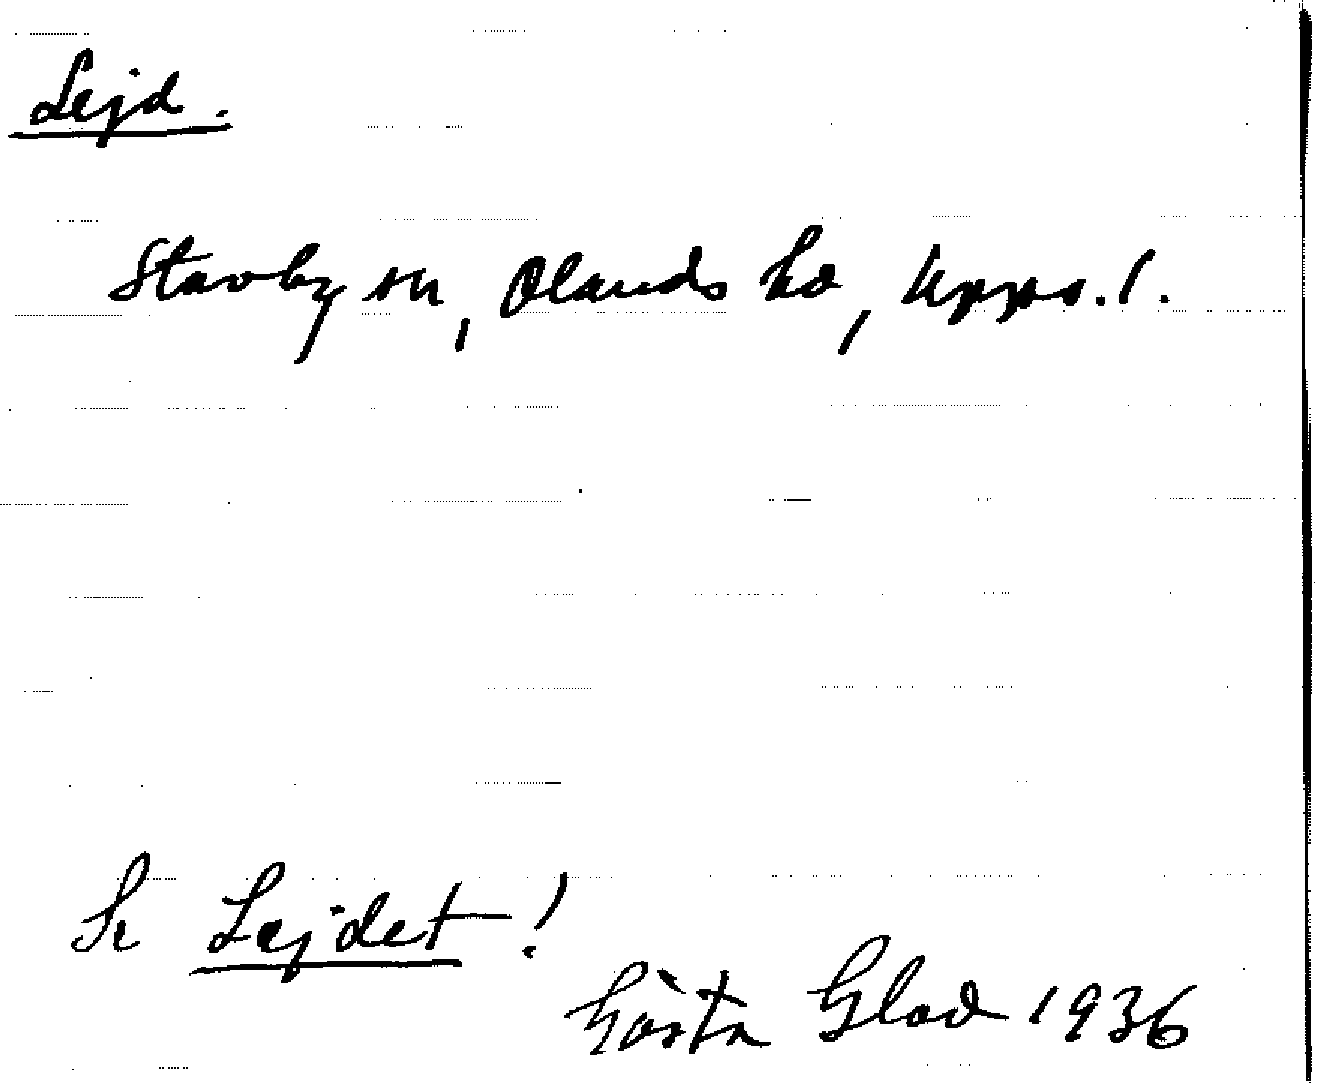 Lejd.
Stavby sn, Olands hd, Upps. l.
Se Lejdet!
Gösta Glad 1936